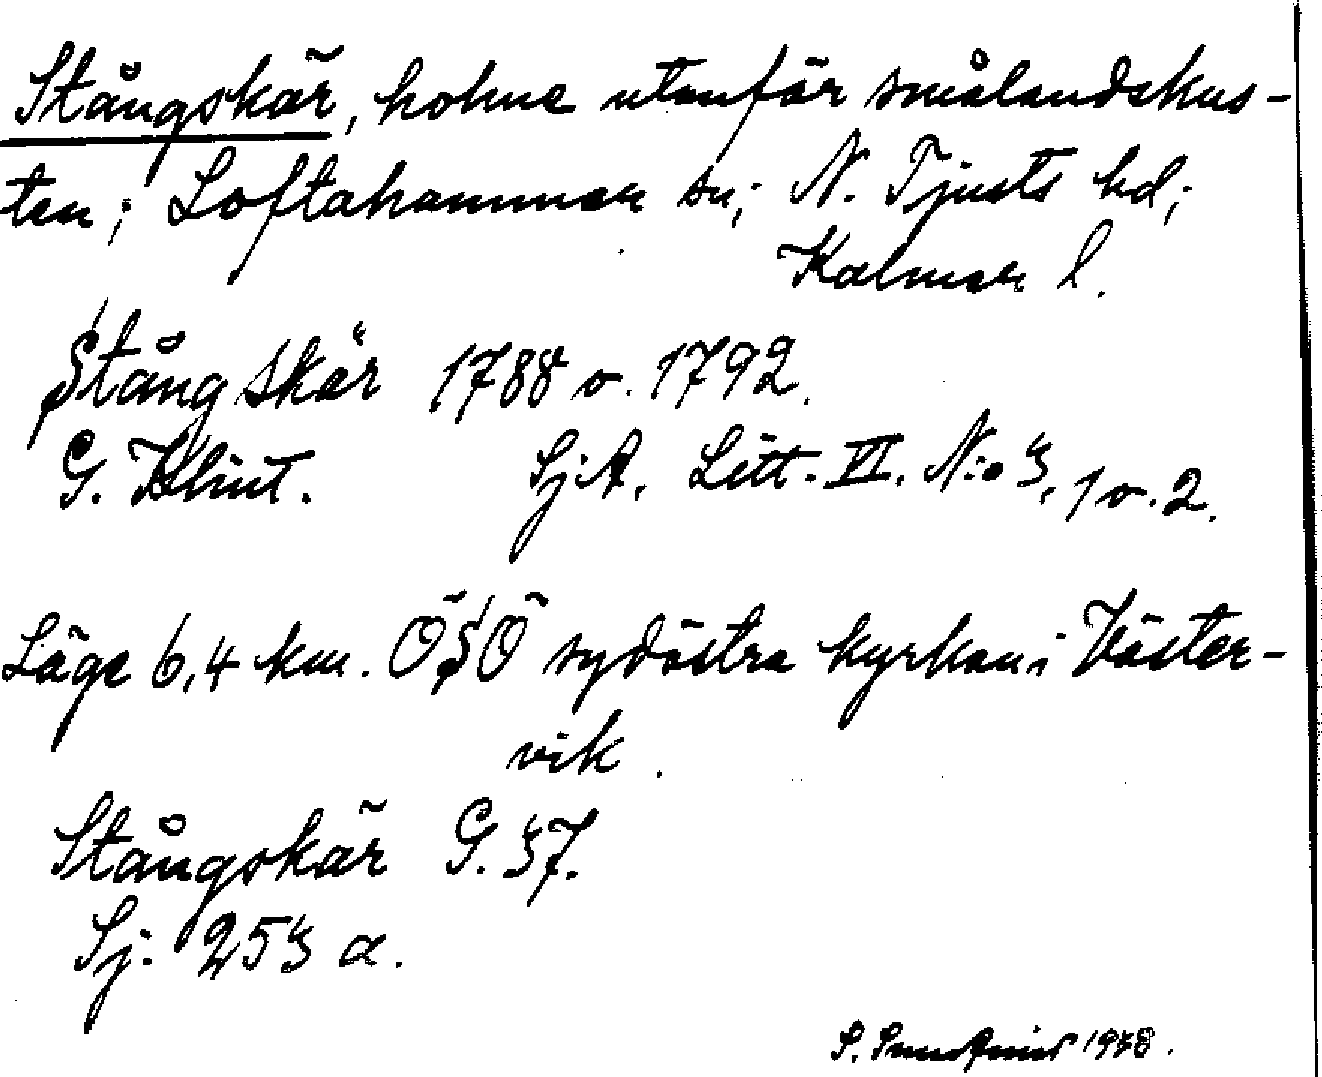 Stångskär, holme utanför smålandskus-
ten; Loftahammar sn; N. Tjusts hd;
Kalmar l.
Stångskär 1788 o. 1792.
G. Klint. Sj.A. Litt. VI. N:o 3, 1 o. 2.
Läge 6,4 km. ÖSÖ sydöstra kyrkan i Väster-
vik.
Stångskär G. 37.
Sj: 253 a.
S. 1938.